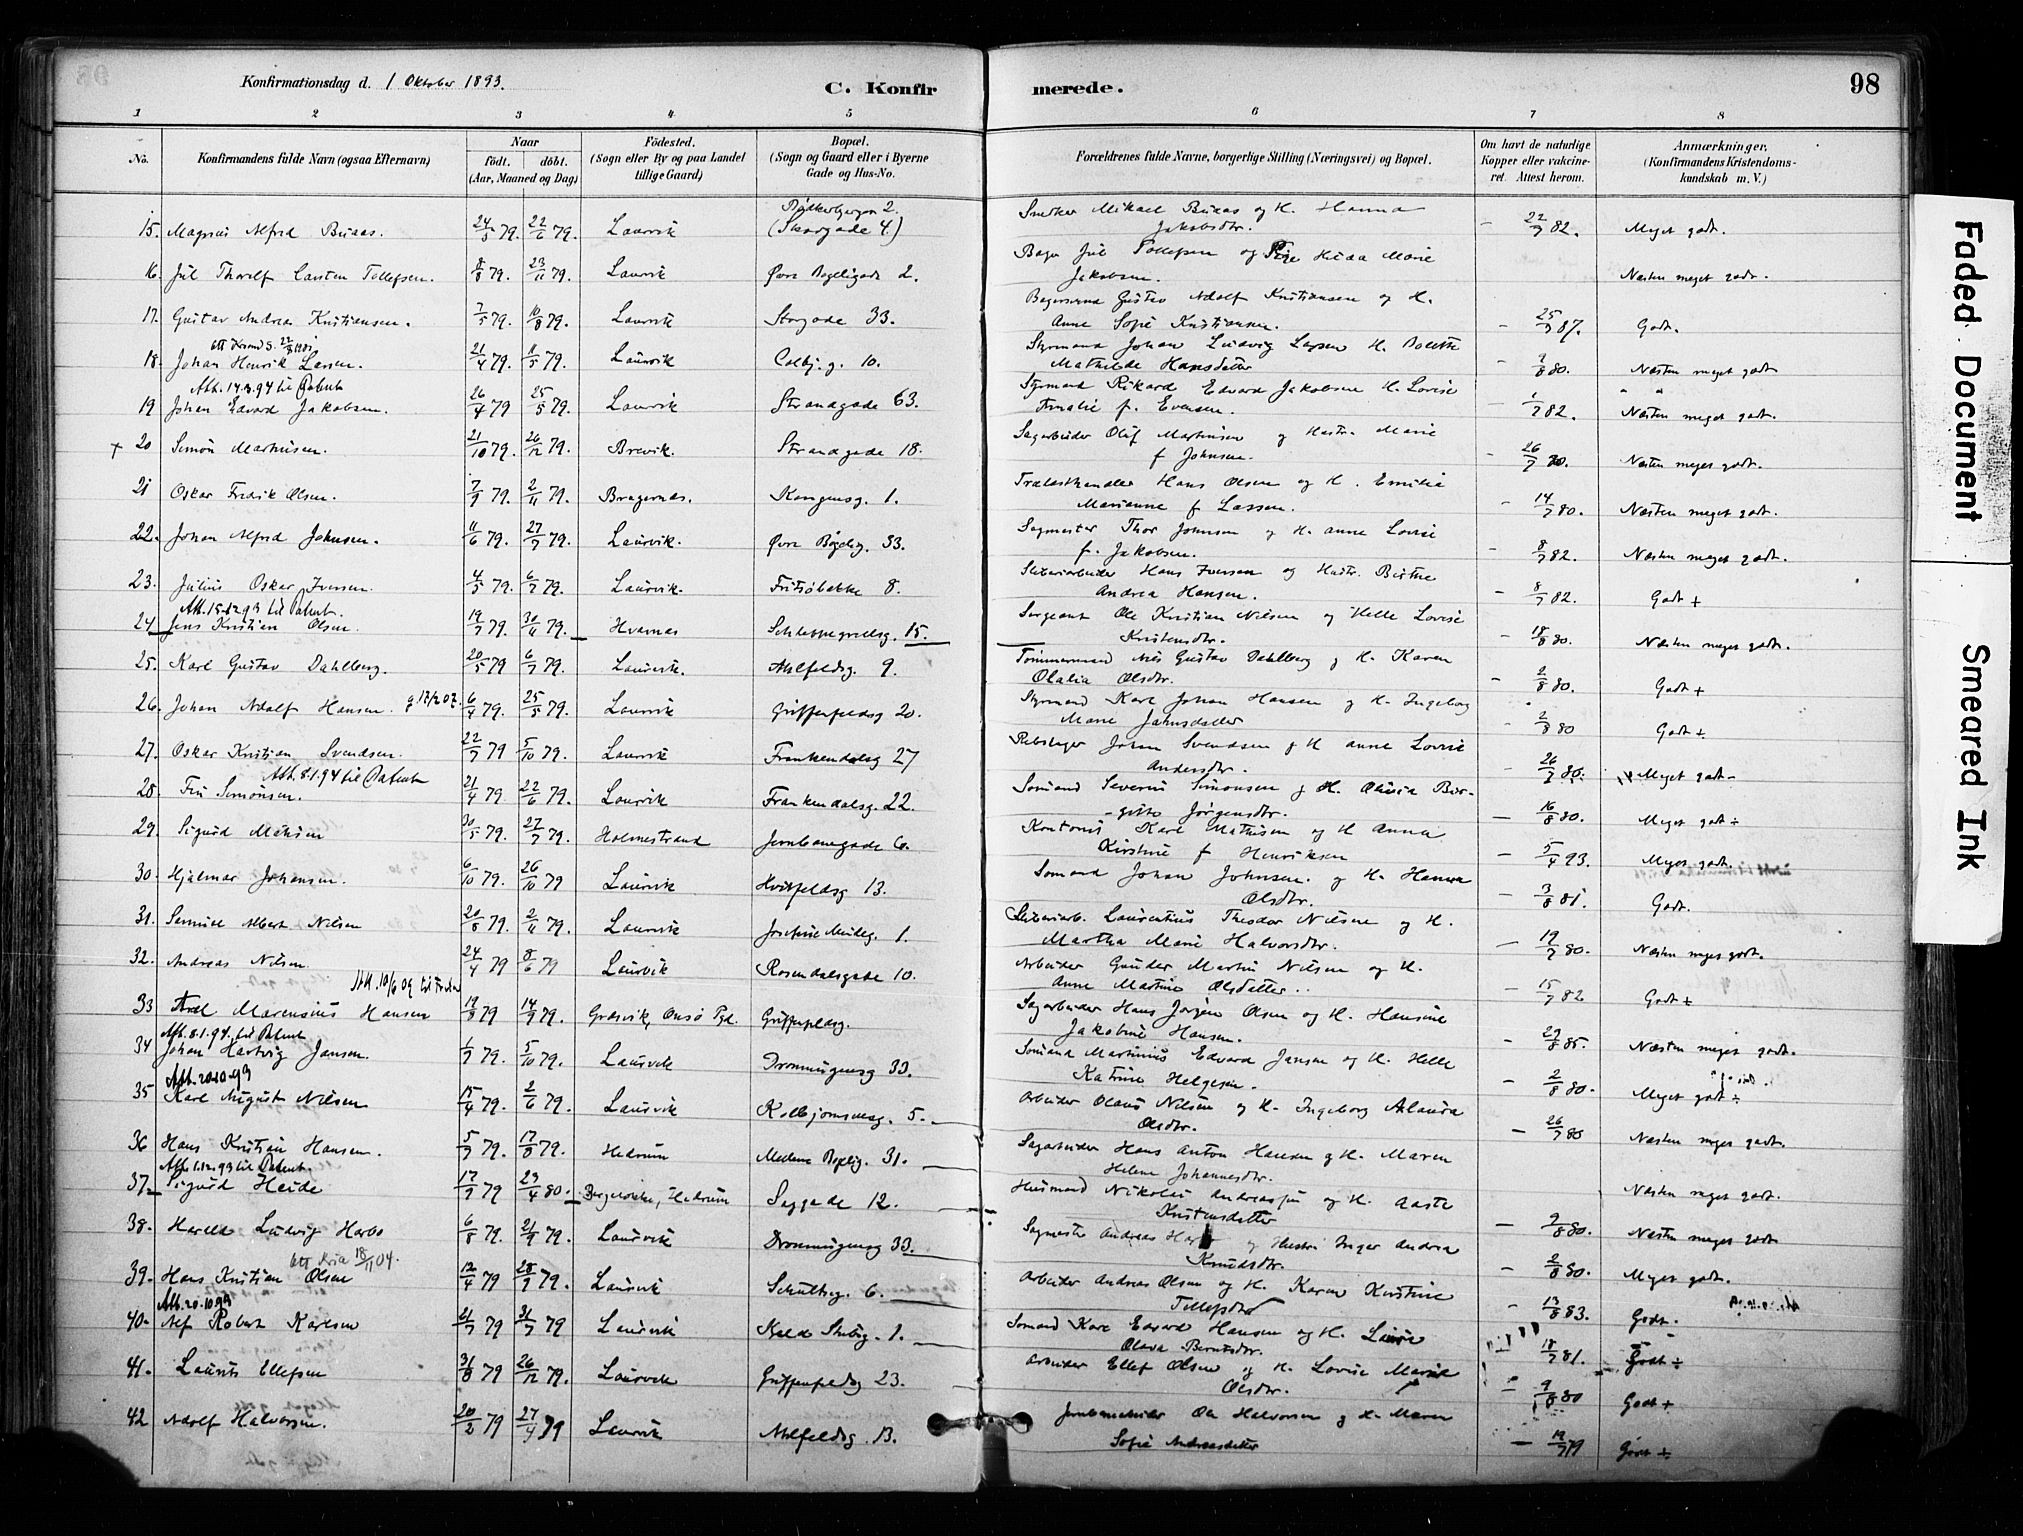 Konfirmationsdag d. 1 Oktober 1893.
C. Konfir merede.
98
1 2 3 4 5 6 7 8
No. Konfirmandens fulde Navn (ogsaa Efternavn) Naar født. døbt. (Aar, Maaned og Dag) Fødested. (Sogn eller By og paa Landet tillige Gaard) Bopæl. (Sogn og Gaard eller i Byerne Gade og Hus-No. Forældrenes fulde Navne, borgerlige Stilling (Næringsvei) og Bopæl. Om havt de naturlige Kopper eller vakcineret. Attest herom. Anmærkninger. (Konfirmandens Kristendomskundskab m. V.)
15. Magnus Alfred Buaas. 24/5 79. 22/6 79. Laurvik (Skorgade 4.) Snedker Mikael Buaas og H. Hanna Jakobsdtr. - 22/7 82. Meget godt.
16. Jul Thorolf Carsten Tollefsen. 8/8 79. 23/11 79. Laurvik Øvre Bøgeligade 2. Bager Jul Tollefsen og Pige Hilda Marie Jakobsen. Næsten meget godt.
17. Gustav Andreas Kristiansen. 7/5 79. 10/8 79. Laurvik Storgade 33. Bagersvend Gustav Adolf Kristiansen og H. Anne Sofie Kristiansen. - 25/7 87. Godt.
18. Johan Henrik Larsen. 21/4 79. 11/5 79. Laurvik Colbj. g. 10. Styrmand Johan Ludvig Larsen H. Bolette Mathilde Hansdatter - 2/8 80. Næsten meget godt
Att. 14.3.94 til Patent
19 Johan Edvard Jakobsen. 26/4 79 25/5 79. Laurvik Strandgade 63. Styrmand Rikard Edvard Jakobsen H. Lovise Amalie f. Evensen. - 1/7 82. Næsten meget godt.
+ 20 Simon Martinsen. 21/10 79. 26/12 79. Brevik. Strandgade 18. Sagarbeider Oluf Martinsen og Hustr. Marie f Johnsen. - 26/7 80. Næsten meget godt.
21 Oskar Fredrik Olsen. 7/9 79. 2/11 79. Bragernæs. Kongensg. 1. Trælasthandler Hans Olsen og H. Emilie Marianne f Lassen. - 14/7 80. Næsten meget godt.
22. Johan Alfred Johnsen. 11/6 79. 27/7 79. Laurvik. Øvre Bøgelig. 33. Sagmester Thor Johnsen og H. Anne Lovise f. Jakobsen. - 8/7 82. Næsten meget godt.
23. Julius Oskar Iversen. 4/5 79. 6/7 79. Laurvik. Fritsøbakke 8. Sliberiarbeider Hans Iversen og Hustr. Birthe Andrea Hansen. - 8/7 82. Godt +
Att. 15.12.93 til Patent.
24 Jens Kristian Olsen. 19/7 79. 30/11 79. Hvarnæs Schleppegrelsg. 15. Sergeant Ole Kristian Nilsen og Helle Lovise Kristensdtr. - 18/8 80. Næsten meget godt.
25. Karl Gustav Dahlberg. 20/5 79 6/7 79. Laurvik. Ahlfeldsg. 9. Tømmermand Nils Gustav Dahlberg og H. Karen Olalia Olsdtr. - 2/8 80. Godt +
26. Johan Adolf Hansen. 6/4 79. 25/5 79. Laurvik Griffenfeldsg 20. Styrmand Karl Johan Hansen og H. Ingeborg Marie Jahnsdatter - 2/8 80 Godt ÷
27. Oskar Kristian Svendsen. 22/7 79 5/10 79. Laurvik Frankendalsg 27 Rebslager Johan Svendsen og H Anne Lovise Andersdtr. - 26/7 80. Meget godt -
Att. 8.1.94 til Patent
28. Fin Simonsen. 21/4 79. 22/6 79. Laurvik Frankendalsg. 22. Sømand Severin Simonsen og H. Olivia Birgitte Jørgensdtr. - 16/8 80. Meget godt ÷
29. Sigurd Mathisen 30/5 79. 27/7 79. Holmestrand Jernbanegade 6. Kontorist Karl Mathisen og H Anna Kirstine f Henriksen - 5/4 93. Meget godt.
30. Hjalmar Johansen. 6/10 79. 26/10 79 Laurvik Hvitfeldsg 13. Sømand Johan Johnsen. og H. Hanna Olsdtr. - 3/8 81. Godt.
31. Samuel Albert Nilsen 20/8 79. 2/11 79. Laurvik 1. Sliberiarb. Laurentius Theodor Nilsen og H. Martha Marie Halvorsdtr. - 19/7 80. Næsten meget godt.
32. Andreas Nilsen. 24/4 79 8/6 79 Laurvik Rosendalsgade 10. Arbeider Gunder Martin Nilsen og H. Anne Martine Olsdatter. - 15/7 82 Godt ÷
33 Axel Marensius Hansen 19/8 79 14/9 79. Græsvik, Onsø Pgd. Griffenfeldsg. Sagarbeider Hans Jørgen Olsen og H. Hansine Jakobine Hansen. - 27/8 85. Næsten meget godt.
Att. 8.1.94. til Patent
34 Johan Hartvig Jansen. 1/7 79. 5/10 79. Laurvik Dronningensg 33. Sømand Martinius Edvard Jansen og H. Helle Katrine Helgesen. - 2/8 80. Meget godt ÷
Att. 20.10.93
35 Karl August Nilsen 15/4 79. 2/6 79. Laurvik Kolbjørnsensg. 5. Arbeider Olaus Nilsen og H. Ingeborg Alaura Olsdtr. - 26/7 80 Næsten meget godt.
36 Hans Kristian Hansen. 5/7 79. 17/8 79. Hedrum Mellem Bøgelig. 31. Sagarbeider Hans Anton Hansen og H. Maren Helene Johannesdtr. Næsten meget godt.
Att. 1.12.93 til Patent.
37. Sigurd Heide 17/9 79 29/4 80. Hedrum Saggade 12. Husmand Nikolai Andreassen og H. Aaste Kristensdatter - 9/8 80. Næsten meget godt
38. Harald Ludvig Harbo 6/8 79. 21/9 79. Laurvik Dronningensg 33. Sagmester Andreas og Hustru Inger Andrea Knudsdtr. - 2/8 80. Meget godt.
Att Kria 18/11 04.
39. Hans Kristian Olsen 12/4 79 28/9 79. Laurvik Schultzsg. 6. Arbeider Andreas Olsen og H. Karen Kirstine Tollefsdtr - 13/8 83. Godt.
Att. 20.10.93
40. Alf Robert Karlsen 21/7 79 31/7 79 Laurvik Keld Stubsg. 1. Sømand Karl Edvard Hansen og H. Laura Olava Berntsdtr. 18/7 81. Godt ÷
41. Laurits Ellefsen 31/8 79 26/12 79. Laurvik Griffenfeldsg 23. Arbeider Ellef Olsen og H. Lovise Marie Olsdtr. - 9/8 80 Godt +
42 Adolf Halvorsen. 20/2 79 27/4 79 Laurvik Ahlfeldsg. 13. Jernbanearbeider Ole Halvorsen og H. Maren Sofie Andreasdatter - 19/7 79 Godt ÷
Faded Document
Smeared Ink